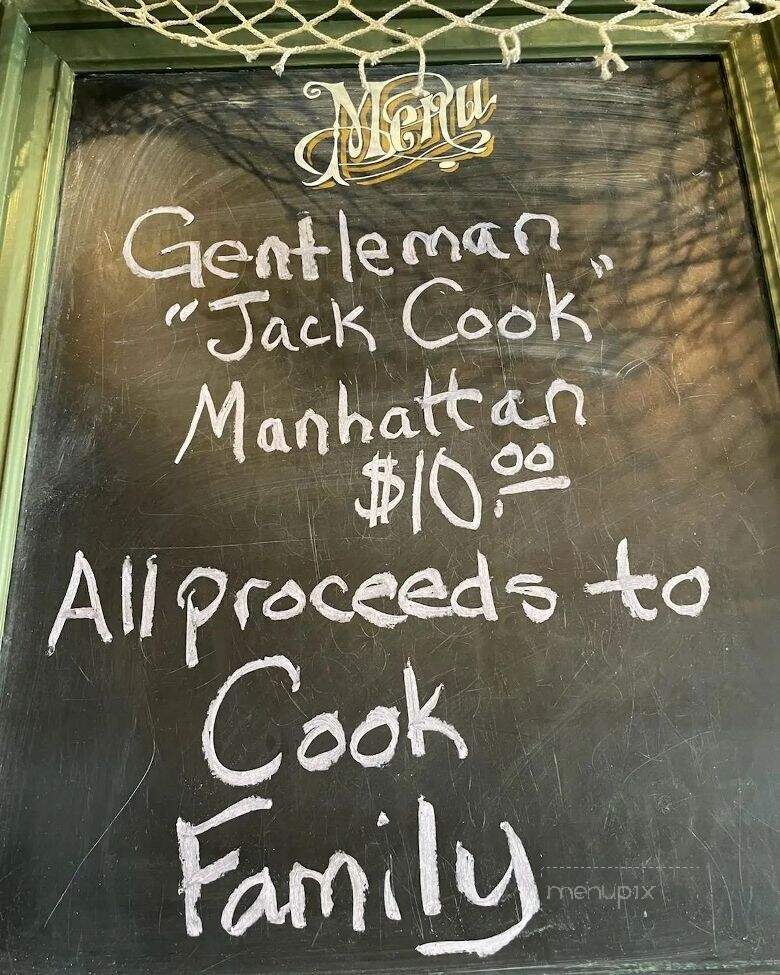 Menu
Gentleman
"Jack Cook"
Manhattan
$10.00
All proceeds to
Cook
Family
menupix